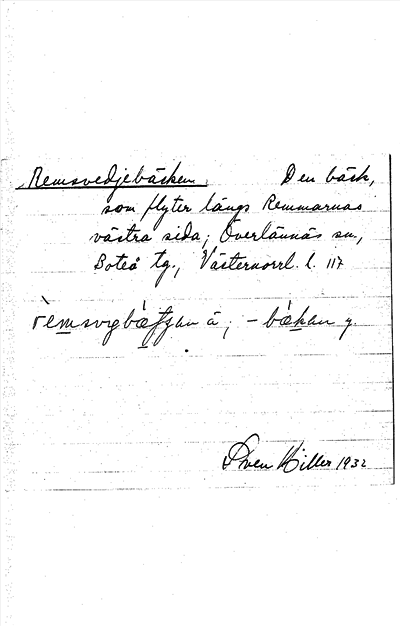 Remsvedjebäcken. Den bäck,
som flyter längs Remmarnas
västra sida; Överlännäs sn.,
Boteå tg., Västernorrl. l. 117
-bækan y.
Sven Hiller 1932